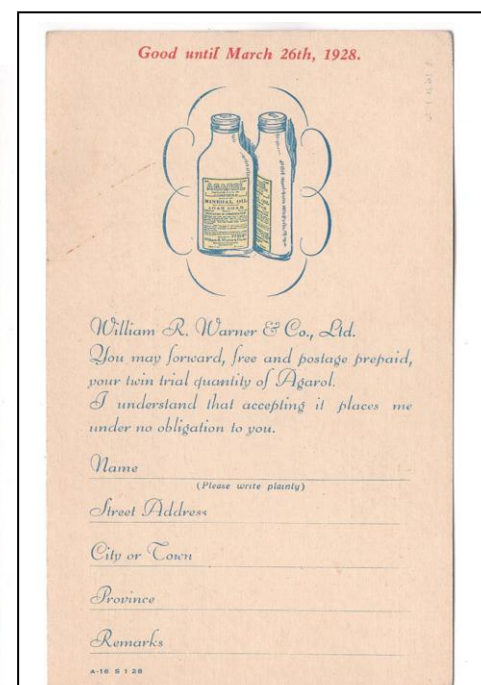 Good until March 26th, 1928.
AGAROL
MINERAL OIL
AGAR AGAR
William R. Warner & Co., Ltd.
You may forward, free and postage prepaid,
your twin trial quantity of Agarol.
I understand that accepting it places me
under no obligation to you.
Name
(Please write plainly)
Street Address
City or Town
Province
Remarks
A-16 S 1 28